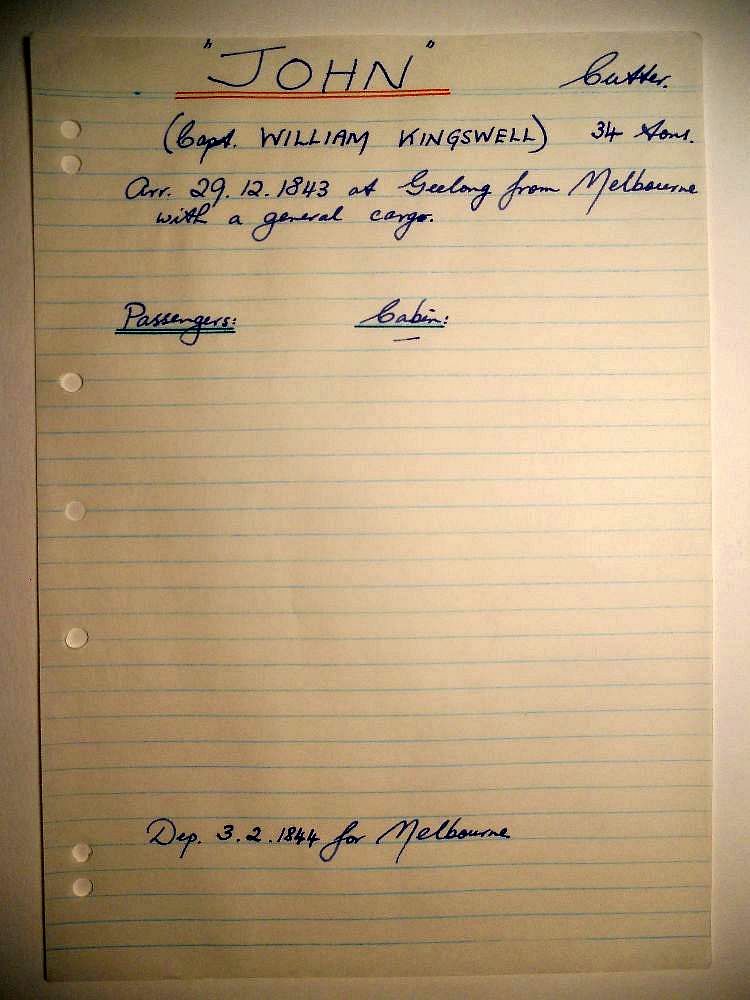 "JOHN" Cutter.
(Capt. WILLIAM KINGSWELL) 34 tons.
Arr. 29.12.1843 at Geelong from Melbourne
with a general cargo.
Passengers: Cabin:
—
Dep. 3.2.1844 for Melbourne